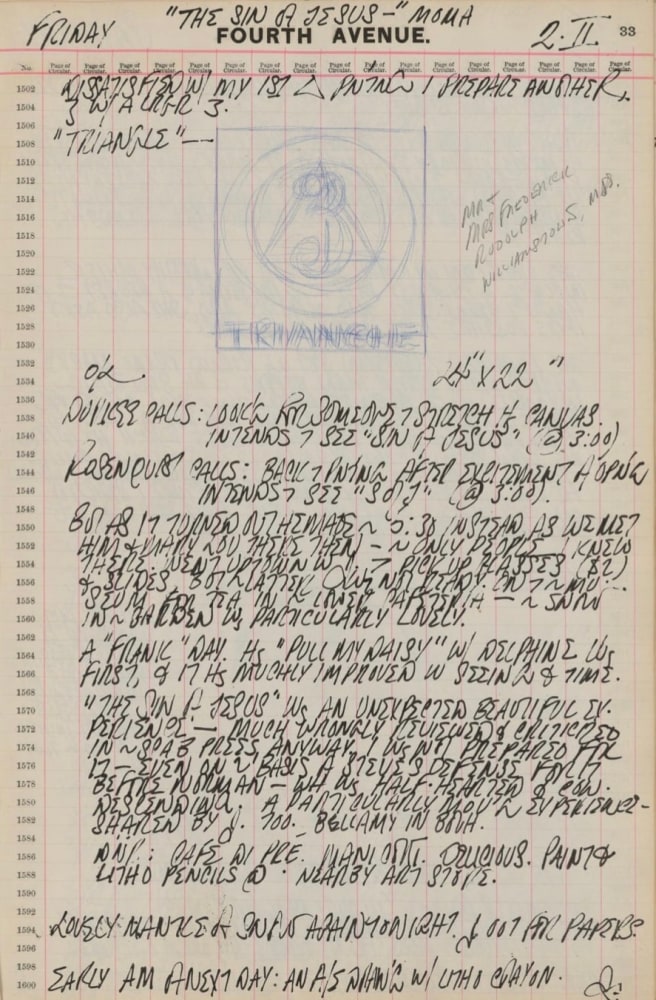 FRIDAY "THE SIN OF JESUS—" MOMA 2·II. 33
FOURTH AVENUE.
No. Page of Circular. Page of Circular. Page of Circular. Page of Circular. Page of Circular. Page of Circular. Page of Circular. Page of Circular. Page of Circular. Page of Circular. Page of Circular. Page of Circular. Page of Circular.
1502 DISATISFIED W/ MY 1ST △ PNTNG I PREPARE ANOTHER,
1504 3 W/ A LRGR 3.
1506
1508 "TRIANGLE"—
1510
1512
1514 MR &
1516 MRS FREDERICK
1518 RUDOLPH
1520 WILLIAMSTOWN, MASS.
1522
1524
1526
1528
1530
1532
1534 24" X 22"
1536
1538 CALLS: LOOK'N FOR SOMEONE 7 STRETCH H. CANVAS.
1540 INTENDS 7 SEE "SIN OF JESUS" (@ 3:00)
1542
1544 ROSENQUIST CALLS: BACK 7 PNTNG AFTER EXCITEMENT OF OP'NG
1546 INTENDS 7 SEE "S OF J" (@ 3:00).
1548
1550 BUT AS IT TURNED OUT HE MADE ~ 5:30 INSTEAD AS WE MET
1552 HIM & MARY LOU THERE THEN — ~ ONLY PEOPLE I KNEW
1554 THERE. WENT UPTOWN W/ 7 PICK UP GLASSES (2)
1556 & SLIDES, BUT LATTER NOT READY. ON 7 ~ MU-
1558 SEUM FOR TEA IN ~ LOWER CAFETERIA — ~ SNOW
1560 IN ~ GARDEN WS PARTICULARLY LOVELY.
1562
1564 A "FRANK" DAY. HS "PULL MY DAISY" W/ DELPHINE WS
1566 FIRST, & IT HS MUCHLY IMPROVED W SEEIN 2ND TIME.
1568
1570 "THE SIN OF JESUS" WS AN UNEXPECTED BEAUTIFUL EX-
1572 PERIENCE — MUCH WRONGLY REVIEWED & CRITICIZED
1574 IN ~ PRESS. ANYWAY, I WS NOT PREPARED FOR
1576 IT — EVEN ON ~ BASIS OF STEVE'S DEFENSE FOR IT
1578 BEFORE NORMAN — WH WS HALF-HEARTED & CON-
1580 DESCENDING. A PARTICULARLY MOV'N EXPERIENCE—
1582 SHARED BY J. TOO. BELLAMY IN BOTH.
1584
1586 DIN: CAFE DI PRE. MANICOTTI. DELICIOUS. PAINT &
1588 LITHO PENCILS @ NEARBY ART STORE.
1590
1592
1594 LOVELY MANTLE OF SNOW AGAIN TONIGHT. J OUT FOR PAPERS.
1596
1598
1600 EARLY AM OF NEXT DAY: DRAW'N W/ LITHO CRAYON.